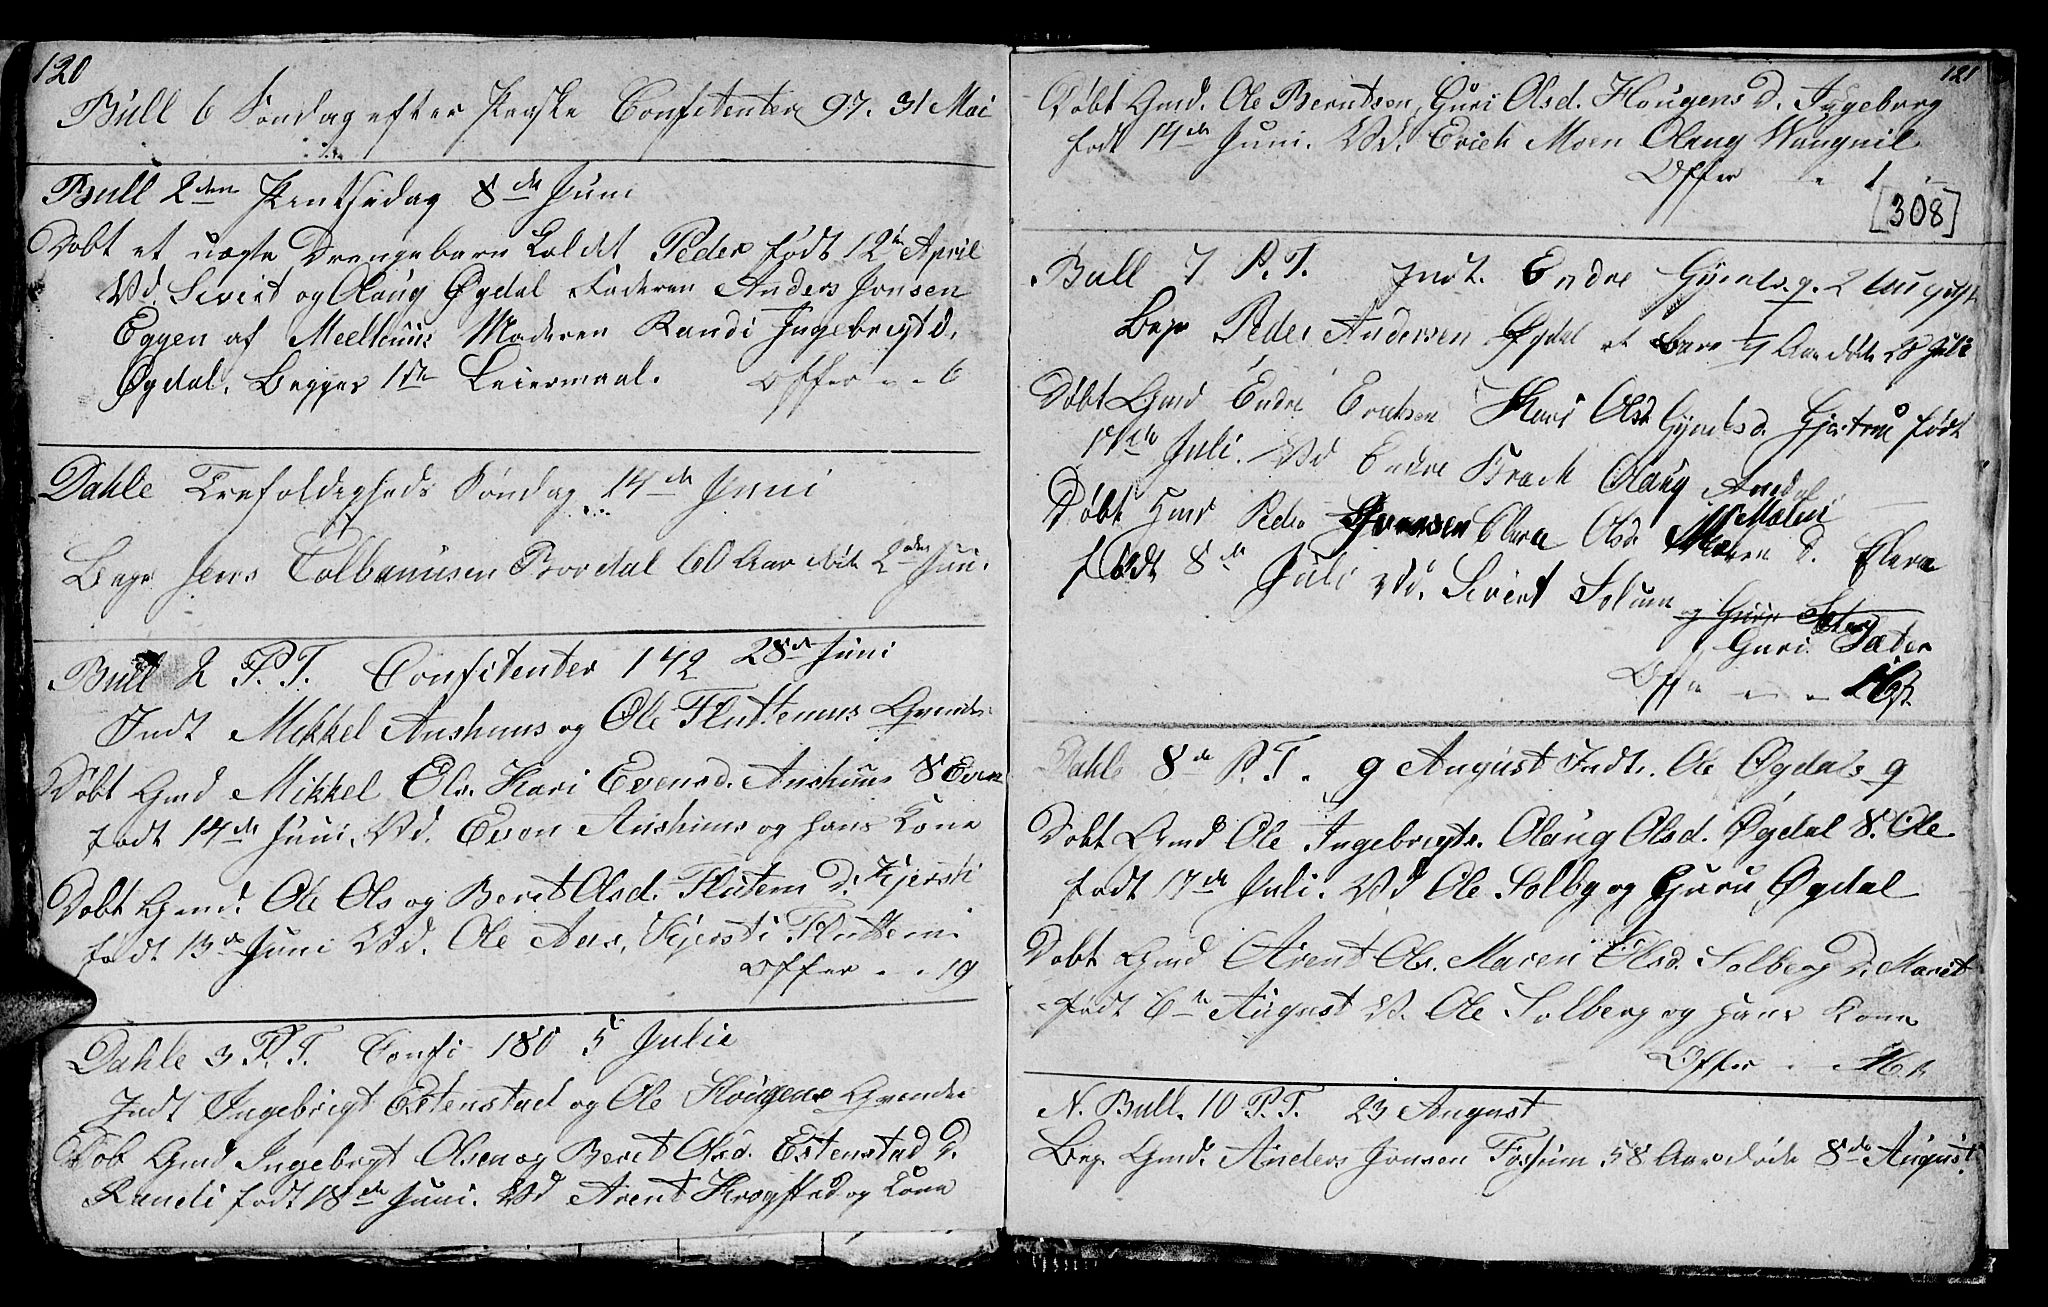 120
Bull 6 Søndag efter Paaske Confitenter 97. 31 Mai
Bull 2den Pintsedag 8de Juni
Døbt et uægte Drengebarn Kaldet Peder født 12te April
Vd. Sivert og Olaug Øgdal Faderen Anders Jonsen
Eggen af Meelhuus Moderen Randi Ingebrigtd.
Øgdal. Begges 1ste Leiermaal. Offer - - 6
Dahle Trefoldigheds Søndag 14de Juni
Begr Jens Colbanusen Bordal 60 Aar død 2den Juni
Bull 2 P. T. Confitenter 142 28de Juni
Indt Mikkel Aushuus og Ole Fluttemus Qvinder
Døbt Gmd Mikkel Ols. Kari Evensd. Aushuus S Even
født 14de Juni. Vd. Even Aushuus og hans Kone
Døbt Gmd. Ole Ols og Beret Olsd. Flutem D. Kjersti
født 13de Juni Vd. Ole Aus, Kjersti Fluttem.
Offer - - 19
Dahle 3 P. T. Confi 180 5 Julie
Indt Ingebrigt Estenstad og Ole Hougens Qvinder
Døb Gmd Ingebrigt Olsen og Beret Olsd. Estenstad D.
Randi født 18de Juni. Vd Arent Krogstad og Kone
121
Døbt Gmd. Ole Berntsen, Guri Olsd. Hougens D. Ingeborg
født 14de Juni. Vd. Erich Moen Olaug
Offer - 1
[308]
Bull 7 P. T. Indt. Endre q. 2 August
Begr Peder Andersen Øgdal et Barn 1/4 Aar døde 28 Juli
Døbt Gmd Endre Ericksen Kari Olsd D. Gjertru født
Juli. Vd Endre Brach Olaug
Døbt Gmd Peder Olava Olsd D. Olava
født 8de Juli Vd. Sivert Solum
og Guri
Guri Sæter
Offer - - 16 s
Dahle 8de P. T. 9 August Indt. Ole Øgdals q
Døbt Gmd Ole Ingebrigts. Olaug Olsd. Øgdal S. Ole
født 17de Juli. Vd Ole Solbg og Guru Øgdal
Døbt Gmd Arent Ols. Maren Olsd. Solberg D. Marit
født 6te August Vd. Ole Solberg og hans Kone
Offer - - 16 s
N. Bull. 10 P. T. 23 August
Beg. Gmd. Anders Jonsen Fossum 58 Aar døde 8de August